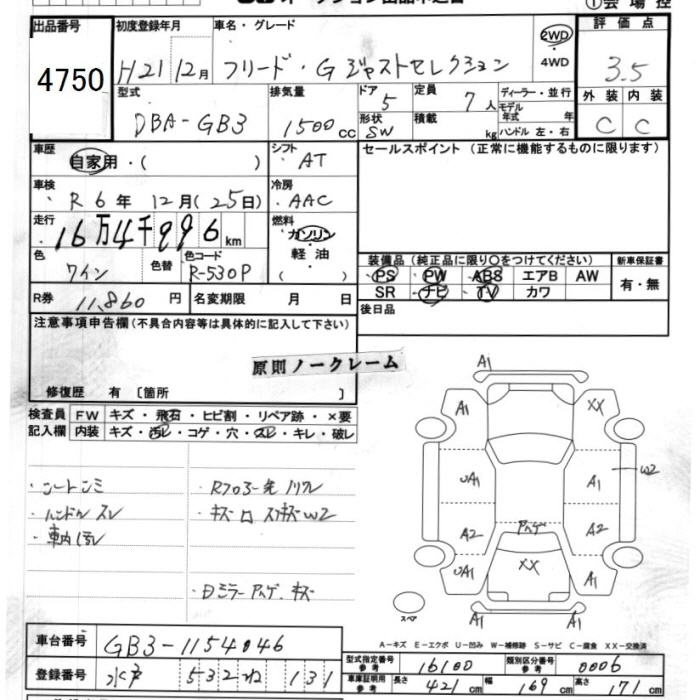 ①会場控
出品番号
4750
初度登録年月
H21/12月
車名・グレード
フリード・G ジャストセレクション
2WD
・
4WD
評価点
3.5
外装 内装
C C
型式
DBA-GB3
排気量
1500cc
ドア
5
形状
SW
定員
7人
積載
kg
ディーラー・並行
モデル年式 年
ハンドル 左・右
車歴
自家用・( )
シフト
AT
セールスポイント (正常に機能するものに限ります)
車検
R6年 12月(25日)
冷房
AAC
走行
16万4千996km
燃料
ガソリン
軽油
( )
色
ワイン
色替
色コード
R-530P
R券
11,860円
名変期限 月 日
装備品(純正品に限り○をつけてください)
PS PW ABS エアB AW
SR ナビ TV カワ
新車保証書
有・無
後日品
注意事項申告欄(不具合内容等は具体的に記入して下さい)
原則ノークレーム
修復歴 有〔箇所 〕
検査員記入欄
FW キズ・飛石・ヒビ割・リペア跡・×要
内装 キズ・汚レ・コゲ・穴・スレ・キレ・破レ
・シートシミ
・ハンドルスレ
・車内汚レ
・キズ凹 スリキズW2
・Dミラー アハゲ、キズ
A1
A1
XX
UA1
A1
W2
A2
アハゲ
A2
XX
UA1
A1
A1
A1
スペア
A-キズ E-エクボ U-凹み W-補修跡 S-サビ C-腐食 XX-交換済
車台番号
GB3-1154046
登録番号
水戸 532 ね 131
型式指定番号
参考
16100
類別区分番号
参考
0006
車庫証明用
参考
長さ 421cm 幅 169cm 高さ 171cm